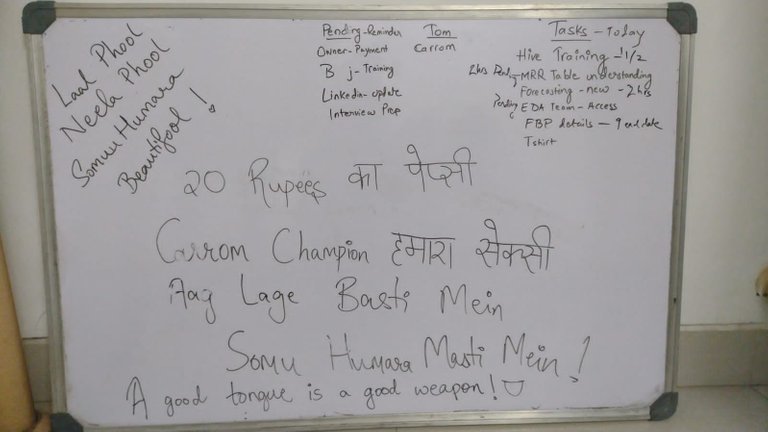 Laal Phool
Neela Phool
Somuu Humara
Beautifool !
Pending - Reminder
Owner - Payment
B j - Training
Linkedin - update
Interview Prep
Tom
Carrom
Tasks - Today
Hive Training - 1 1/2
2hrs Pending MRQ Table understanding
Forecasting - new - 2 hrs
Pending EDA Team - Access
FBP details
Tshirt
20 Rupees का पेप्सी
Carrom Champion हमारा सेक्सी
Aag Lage Basti Mein
Somu Humara Masti Mein !
A good tongue is a good weapon !